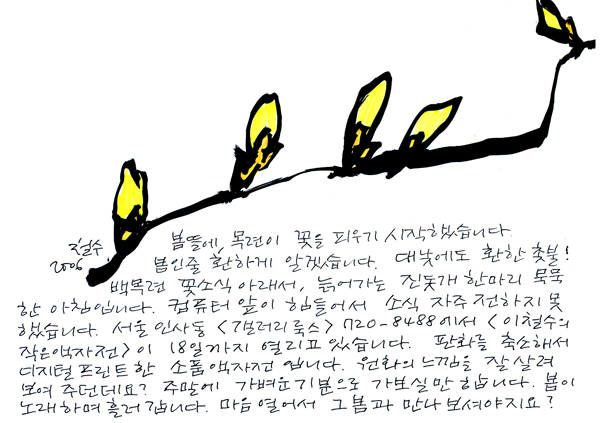 철수.
2006
봄뜰에, 목련이 꽃을 피우기 시작했습니다.
봄인줄 환하게 알겠습니다. 대낮에도 환한 촛불!
백목련 꽃소식 아래서, 늙어가는 진돗개 한마리 묵묵
한 아침입니다. 컴퓨터 앞이 힘들어서 소식 자주 전하지 못
했습니다. 서울 인사동 <갤러리 룩스> 720-8488에서 <이철수의
작은액자전>이 18일까지 열리고 있습니다. 판화를 축소해서
디지털프린트한 소품액자전입니다. 원화의 느낌을 잘 살려
보여 주던데요? 주말에 가벼운기분으로 가보실만 합니다. 봄이
노래하며 흘러 갑니다. 마음 열어서 그 봄과 만나 보셔야지요?